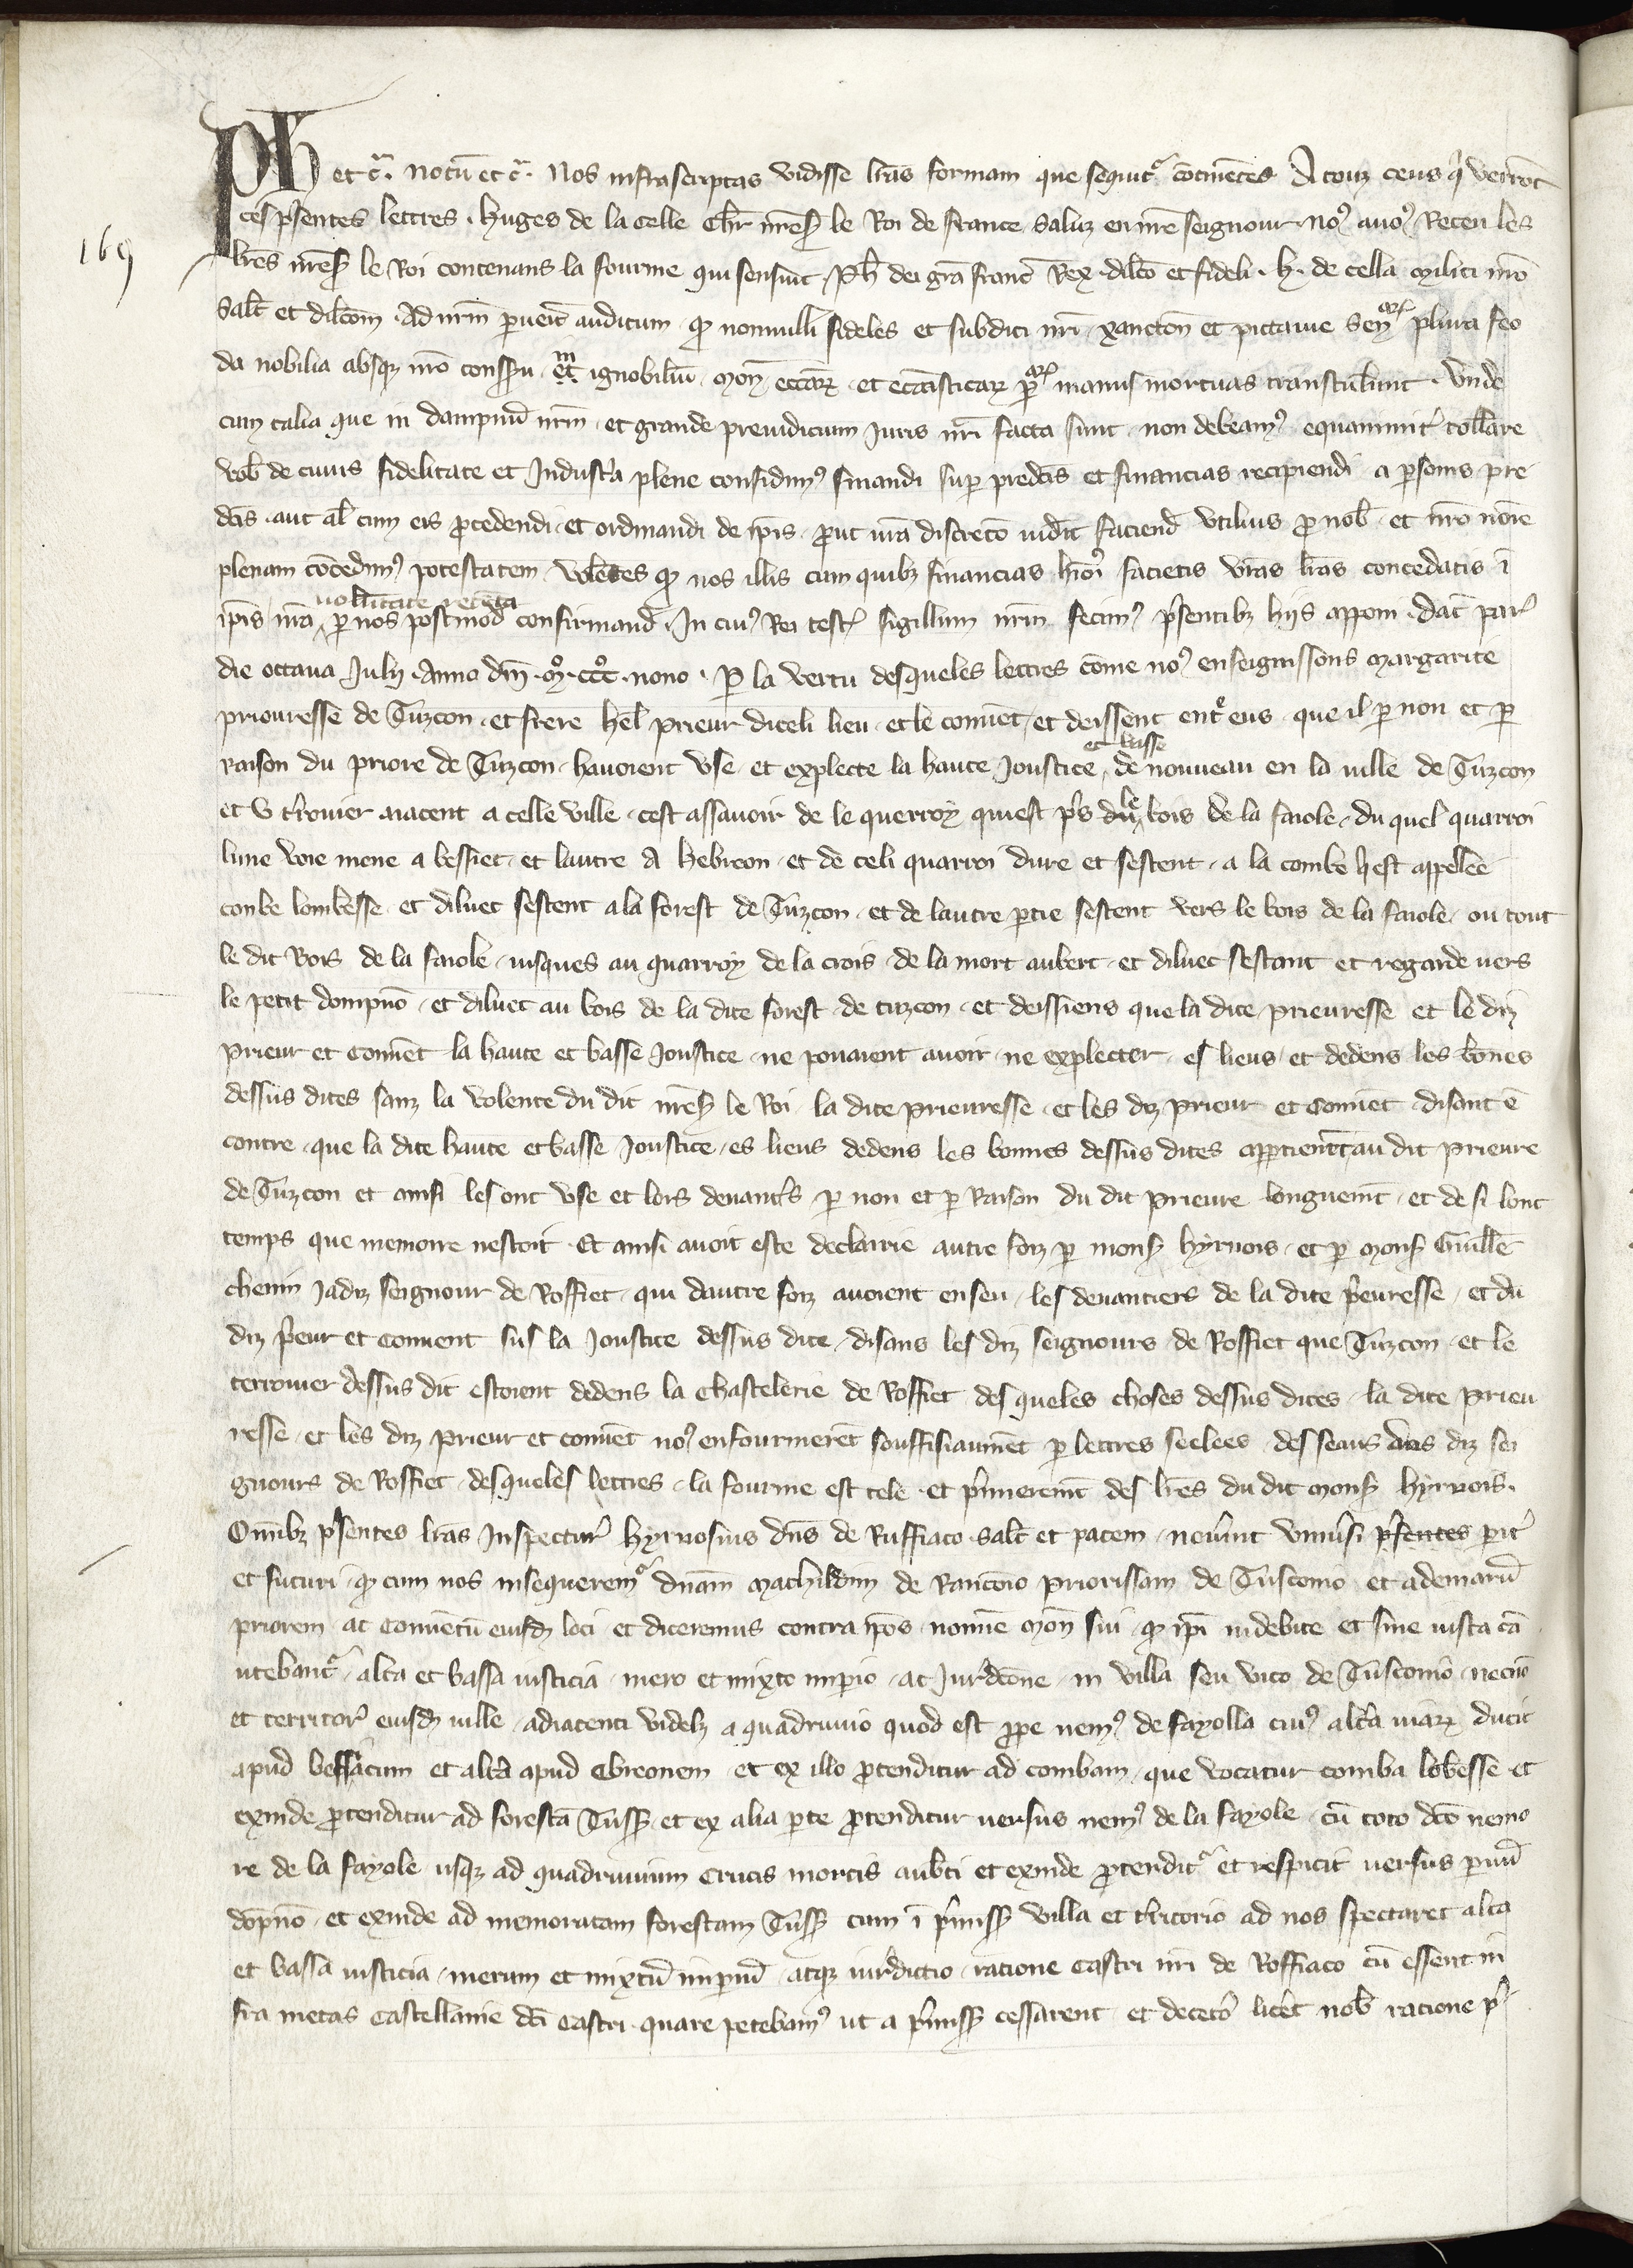 Ph et c̃. notū et c̃. Nos infrascriptas vidisse lr̃as formam que sequit᷑ ꝯtinētes A touz ceus q̃ verrōt
ces p̃sentes lettres. Huges de la Celle Chlr nr̃eS le Roi de france saluz en nr̃e seignour. noꝰ auoꝰ Receu les
lr̃es nr̃eS le Roi contenans la fourme qui sensuit. Ph dei gr̃a franc̃ Rex. dilc̃o et fideli. H. de cella Militi nr̃o
Salt̃ et dilc̃om. Ad nrm̃ peruēit auditum qđ nonnulli fideles et subditi nr̃i xancton̄ et pictauie señ plura feo
da nobilia absqꝫ nr̃o consensu in ignobiliū moñ ecc̃arꝫ et ecc̃asticarꝫ ꝑ manus mortuas transtul̃unt. Vnde
cum talia que in dampnū nrm̃ et grande preiudicium Iuris nr̃i facta sunt non debeamꝰ equanimit̃ toll̃are
vob̃ de cuius fidelitate et Industr̃a plene confidimꝰ finandi sup̲ predc̃is et financias recipiendi a ꝑsonis pre
dc̃is aut al̃ cum eis ꝓcedendi et ordinandi de ip̃is ꝓut ur̃a discretō uid̃it faciend̃ vtilius ꝓ nob̃ et nr̃o nōīe
plenam ꝯcedimꝰ potestatem. Volētes qđ nos illis cum quibꝫ financias hm̃oi facietis vr̃as lr̃as concedatis ī
ip̃is ur̃a uoluntate retenta ꝑ nos postmod̃ confirmand̃. In cuiꝰ Rei test̃ sigillum nrm̃ fecimꝰ p̃sentibꝫ hiis apponi. dat̃ par̃
die octaua Julij Anno dn̄i. mͦ. cccͦ. nono. P la vertu des queles lettres cōme noꝰ enseignissons Margarite
prieuresse de Tuzcon. et frere Hel̃ prieur diceli lieu. et le conuēt et deissent ent͛ eus que il ꝑ non et ꝑ
raison du priore de Tuzcon. hauoient vse et explecte la haute Joustice et basse de nouueau en la uille de Tuzcon
et v t̃rouer aiacent a celle ville. cest assauoir de le querroy qui est p̃s le bois de la faiole. du quel quarroi
lune voie mene a bessiet. et lautre a hebreon. et de celi quarroi dure et sestent. a la combe q̃ est appelee
conbe lombesse. et diluec sestent a la forest de Tuzcon. et de lautre ꝑtie sestent vers le bois de la faiole. ou tout
le dit Bois de la faiole. iusques au quarroy de la crois de la mort aubert. et diluec sestant et regarde uers
le petit dompnō. et diluec au bois de la dite forest de tuzcon. et deissiens que la dite prieuresse et le diz
prieur et Conuēt la haute et basse Joustice ne pouaient auoir ne explecter. es lieus et dedens les bōnes
dessus dites sanz la volente du dit nr̃eS le Roi. la dite prieuresse et les diz prieur et Conuēt disant ē
contre que la dite haute et basse Joustice es lieus dedens les bonnes dessus dites apꝑtienēt au dit prieure
de Tuzcon et ainsi les ont vse et lors deuant̃s ꝑ non et ꝑ Raison du dit prieure longuem̃t et de si lonc
temps que memoire nestoit. Et ainsi auoit este declairie autre foiz ꝑ monS hyruois. et ꝑ monS Guill̃e
chenin Jadiz seignour de Roffiet. qui dautre foiz auoient enseu les deuantiers de la dite p̃euresse et du
diz p̃eur et Conuent sus la Joustice dessus dite. disans les diz seignours de Roffiet que Tuzcon et le
terrouer dessus dit estoient dedens la Chastelerie de Roffiet. des queles choses dessus dites la dite prieu
resse et les diz prieur et conuēt noꝰ enfourmerēt souffisiaumēt ꝑ lettres seelees des seaus des diz sei
gnours de Roffiet. des queles lettres la fourme est tele. et p̃mierem̃t des lr̃es du dit MonS hyruois.
Om̄ibꝫ p̃sentes lr̃as Inspectur̃ hyruosius dn̄s de Ruffiaco salt̃ et pacem. Nou̇int vniu̇si p̃sentes ꝑit̃
et futuri. qđ cum nos insequerem᷑ dn̄am Machildim de Ranconio priorissam de Tusconio et ademarū
priorem ac Conuētū eiusdꝫ loci et diceremus contra ip̃os nomīe Moñ sui. qđ ip̃i indebite et sine iusta cā
utebant᷑. alta et bassa iusticia. mero et mixto imꝑio. ac Jurd̃cōne. in villa seu vico de Tusconio. necnō
et territor̃ eiusdꝫ uille adiacenti. videlꝫ a quadriuio quod est ꝓpe nemꝰ de fayolla cuiꝰ alt̃a uiarꝫ ducit
apud bessiacum et alt̃a apud Ebreonem et ex illo ꝓtenditur ad combam que vocatur comba lōbesse et
exinde ꝓtenditur ad forestā TusS. et ex alia ꝑte ꝓtenditur uersus nemꝰ de la fayole. cū toto dc̃o nemo
re de la fayole usqꝫ ad quadriuium crucis mortis aub̃ti et exinde ꝓtendit᷑ et respicit uersus ꝑuū
dōpnō. et exinde ad memoratam forestam TusS. cum ī p̃missS villa et t̃ritorio ad nos spectaret alta
et bassa iusticia merum et mixtū imꝑiū atqꝫ iurd̃ictio ratione castri nr̃i de Roffiaco cū essent in
fra metas Castellanie dc̃i Castri. quare petebamꝰ ut a p̃missS cessarent et decet̃o lic̃et nob̃ ratione p̃
169